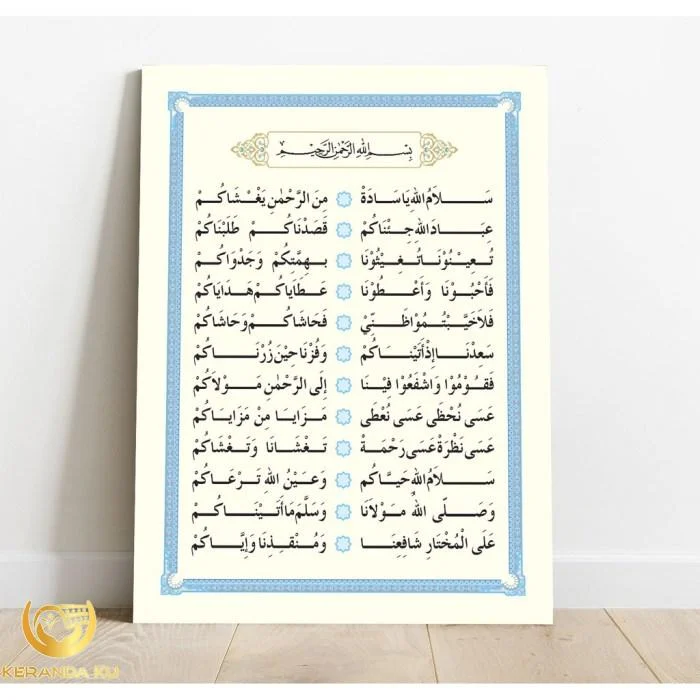 بِسْمِ اللهِ الرَّحْمٰنِ الرَّحِيْمِ
سَلَامُ اللهِ يَا سَادَةْ مِنَ الرَّحْمٰنِ يَغْشَاكُمْ
عِبَادَ اللهِ جِئْنَاكُمْ قَصَدْنَاكُمْ طَلَبْنَاكُمْ
تُعِيْنُوْنَا تُغِيْثُوْنَا بِهِمَّتِكُمْ وَجَدْوَاكُمْ
فَأَحْبُوْنَا وَأَعْطُوْنَا عَطَايَاكُمْ هَدَايَاكُمْ
فَلَا خَيَّبْتُمُوْا ظَنِّيْ فَحَاشَاكُمْ وَحَاشَاكُمْ
سَعِدْنَا إِذْ أَتَيْنَاكُمْ وَفُزْنَا حِيْنَ زُرْنَاكُمْ
فَقُوْمُوْا وَاشْفَعُوْا فِيْنَا إِلَى الرَّحْمٰنِ مَوْلَاكُمْ
عَسَى نُحْظَى عَسَى نُعْطَى مَزَايَا مِنْ مَزَايَاكُمْ
عَسَى نَظْرَةْ عَسَى رَحْمَةْ تَغْشَانَا وَتَغْشَاكُمْ
سَلَامُ اللهِ حَيَّاكُم وَعَيْنُ اللهِ تَرْعَاكُمْ
وَصَلَّى اللهُ مَوْلَانَا وَسَلَّمَ مَا أَتَيْنَاكُمْ
عَلَى الْمُخْتَارِ شَافِعِنَا وَمُنْقِذِنَا وَإِيَّاكُمْ
KERANDA_KU